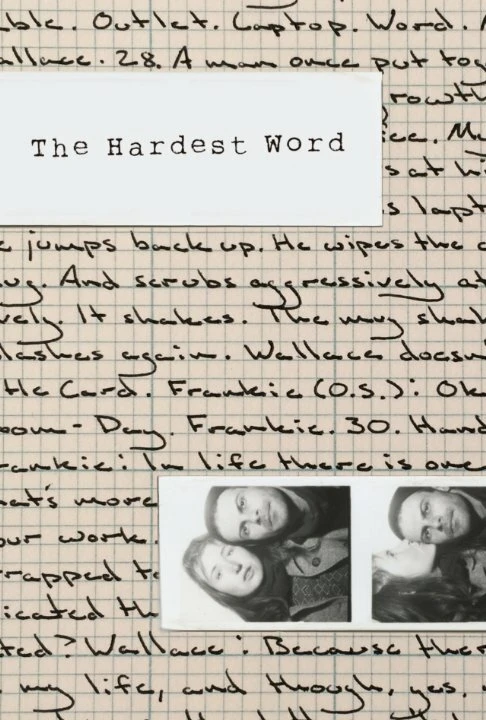 ble. Outlet. Laptop. Word.
allace. 28. A man once put tog
rowth
The Hardest Word
ice.
sat hi
s lapt
e jumps back up. He wipes the
ug. And scrubs aggressively at
vely. It shakes. The mug shak
lashes again. Wallace doesn'
tle Card. Frankie (O.S.): Ok
oom - Day. Frankie. 30. Hand
rankie: In life there is one
hat's more
our work.
rapped to
icated th
ted? Wallace: Because ther
my life, and though, yes,